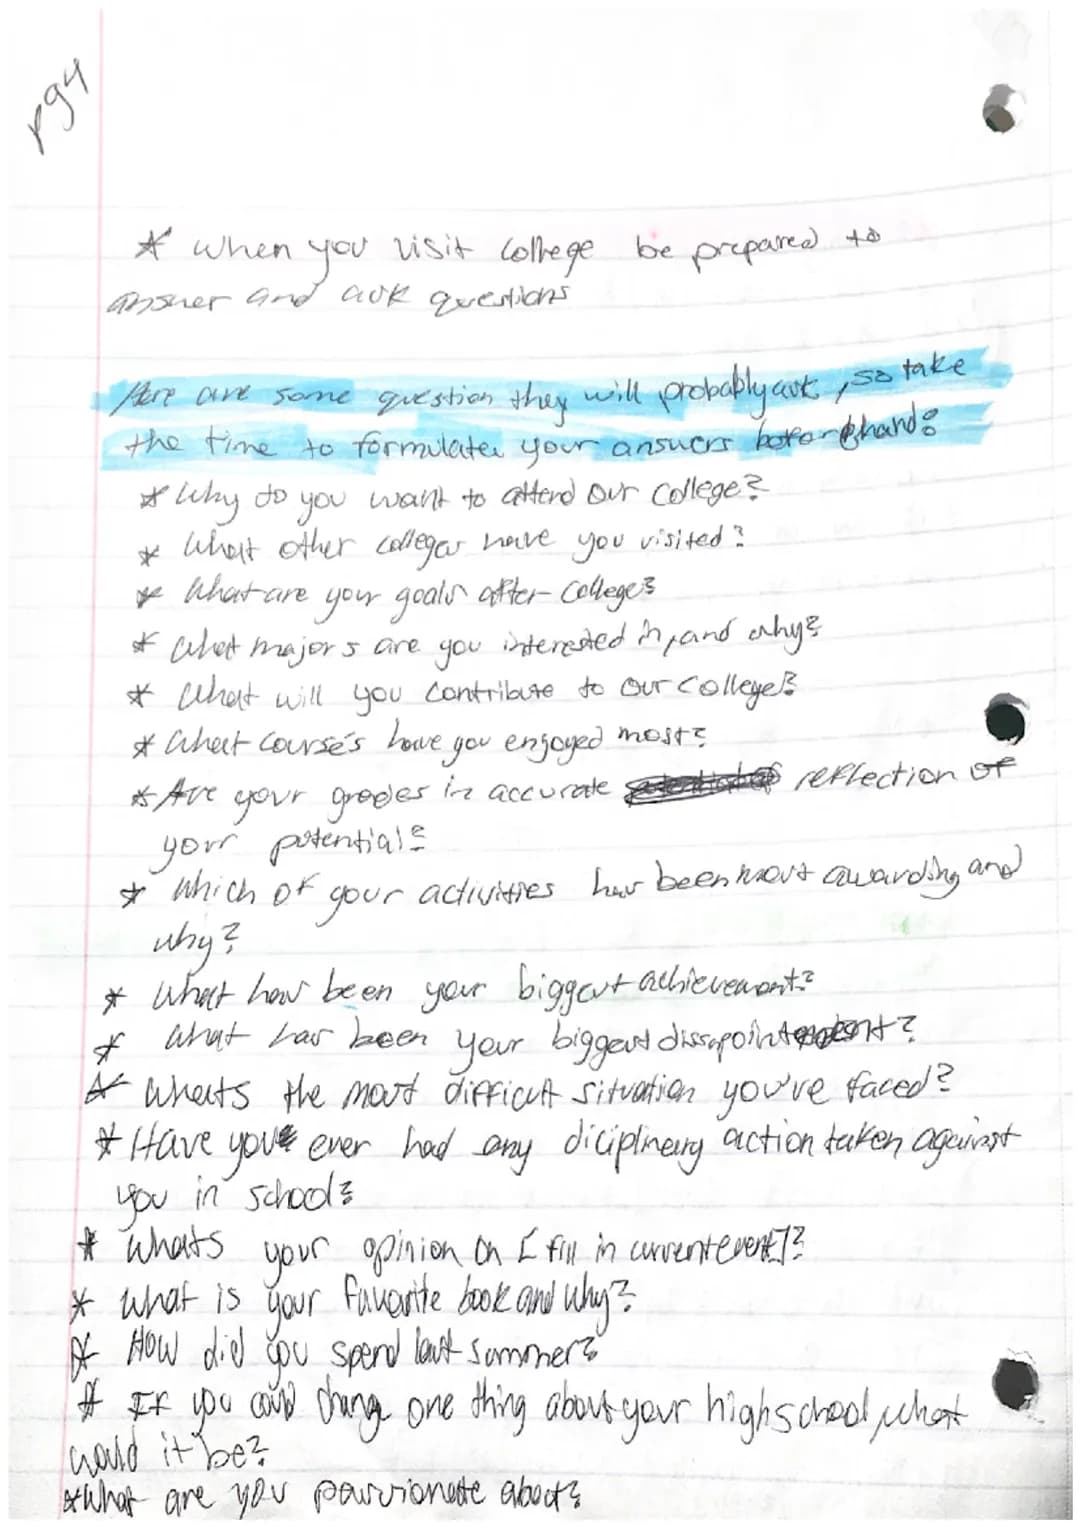 pg4
* When you visit college be prepared to
answer and ask questions
Here are some question they will probably ask, so take
the time to formulate your answers beforehand:
* Why do you want to attend our college?
* What other colleges have you visited?
* What are your goals after college?
* What majors are you interested in, and why?
* What will you contribute to our college?
* What course's have you enjoyed most?
* Are your grades in accurate reflection of
your potential?
* Which of your activities has been most awarding and
why?
* What has been your biggest achievement?
* What has been your biggest dissapointment?
* Whats the most difficult situation you've faced?
* Have you ever had any diciplinary action taken against
you in school?
* Whats your opinion on [fill in current event]?
* What is your favorite book and why?
* How did you spend last summer?
* If you could change one thing about your highschool, what
would it be?
* What are you passionate about?